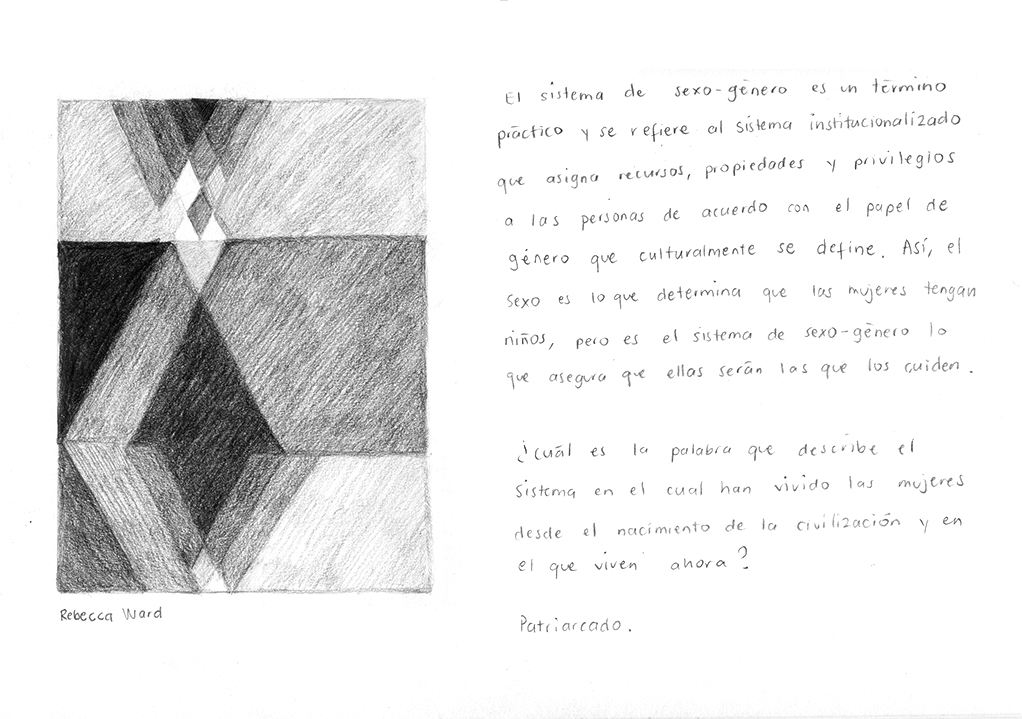 El sistema de sexo-género es un término
práctico y se refiere al sistema institucionalizado
que asigna recursos, propiedades y privilegios
a las personas de acuerdo con el papel de
género que culturalmente se define. Así, el
sexo es lo que determina que las mujeres tengan
niños, pero es el sistema de sexo-género lo
que asegura que ellas serán las que los cuiden.
¿cuál es la palabra que describe el
sistema en el cual han vivido las mujeres
desde el nacimiento de la civilización y en
el que viven ahora?
Patriarcado.
Rebecca Ward